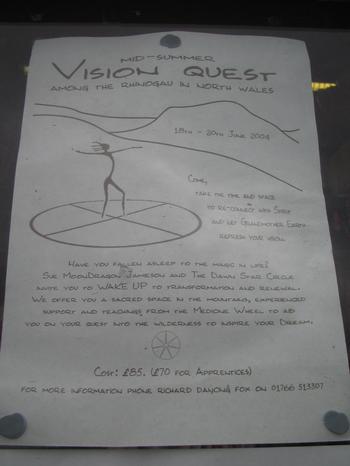 MID-SUMMER
VISION QUEST
AMONG THE RHINOGAU IN NORTH WALES
18TH - 20TH JUNE 2004
COME,
TAKE THE TIME AND SPACE
TO RE-CONNECT WITH SPIRIT
AND LET GRANDMOTHER EARTH
REFRESH YOUR VISION.
HAVE YOU FALLEN ASLEEP TO THE MAGIC IN LIFE?
SUE MOONDRAGON JAMIESON AND THE DAWN STAR CIRCLE
INVITE YOU TO WAKE UP TO TRANSFORMATION AND RENEWAL.
WE OFFER YOU A SACRED SPACE IN THE MOUNTAINS, EXPERIENCED
SUPPORT AND TEACHINGS FROM THE MEDICINE WHEEL TO AID
YOU ON YOUR QUEST INTO THE WILDERNESS TO INSPIRE YOUR DREAM.
COST: £85. (£70 FOR APPRENTICES)
FOR MORE INFORMATION PHONE RICHARD DANCING FOX ON 01766 513307